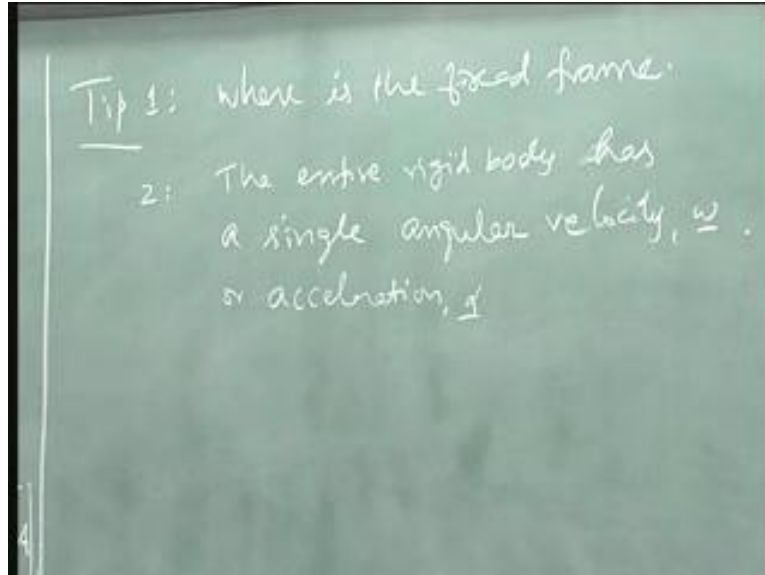 Tip 1: where is the fixed frame.
2: The entire rigid body has
a single angular velocity, ω.
or acceleration,
4